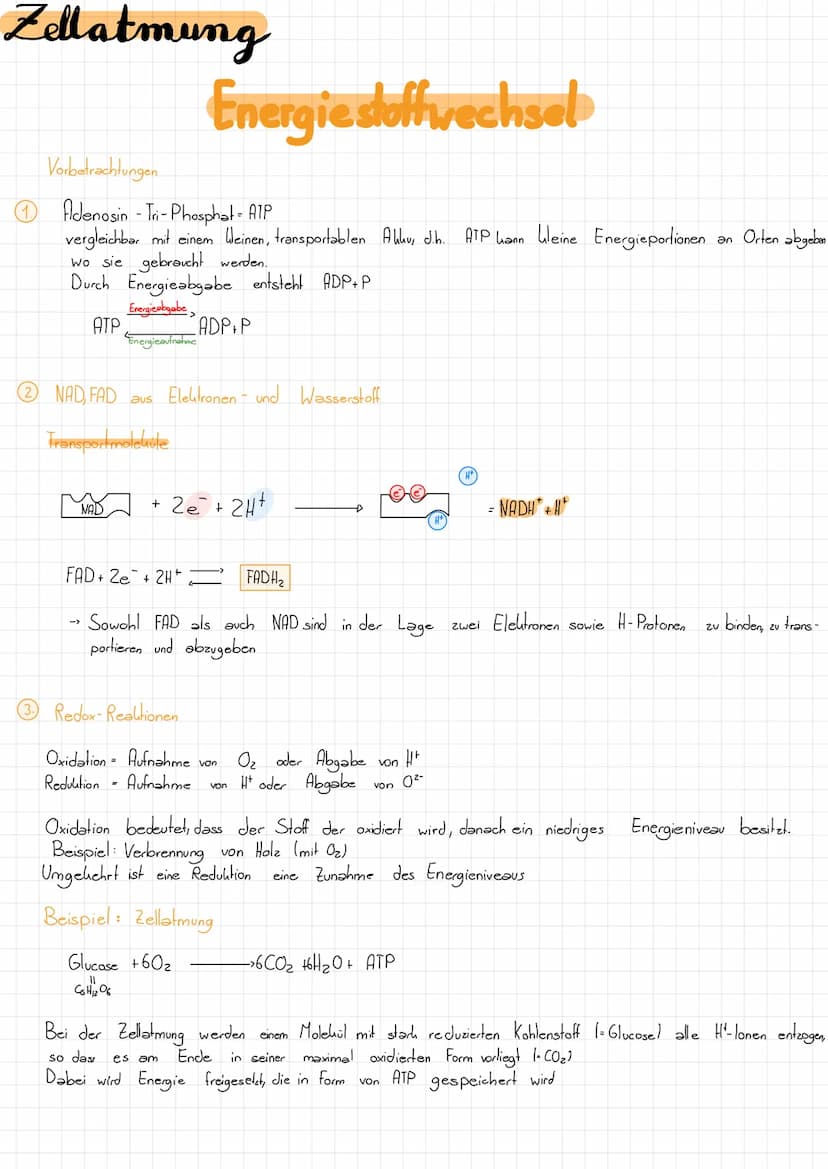 Zellatmung
Energiestoffwechsel
Vorbetrachtungen
1 Adenosin - Tri - Phosphat = ATP
vergleichbar mit einem kleinen, transportablen Akku, d.h. ATP kann kleine Energieportionen an Orten abgeben
wo sie gebraucht werden.
Durch Energieabgabe entsteht ADP + P
Energieabgabe
ATP ADP + P
Energieaufnahme
2 NAD, FAD aus Elektronen - und Wasserstoff
Transportmoleküle
NAD + 2e⁻ + 2H⁺ → e⁻ e⁻ H⁺ H⁺ = NADH⁺ + H⁺
FAD + 2e⁻ + 2H⁺ ⇌ FADH₂
→ Sowohl FAD als auch NAD sind in der Lage zwei Elektronen sowie H-Protonen zu binden, zu trans-
portieren und abzugeben
3. Redox-Reaktionen
Oxidation = Aufnahme von O₂ oder Abgabe von H⁺
Reduktion = Aufnahme von H⁺ oder Abgabe von O²⁻
Oxidation bedeutet, dass der Stoff der oxidiert wird, danach ein niedriges Energieniveau besitzt.
Beispiel: Verbrennung von Holz (mit O₂)
Umgekehrt ist eine Reduktion eine Zunahme des Energieniveaus
Beispiel: Zellatmung
Glucose + 6O₂ → 6CO₂ + 6H₂O + ATP
C₆H₁₂O₆
Bei der Zellatmung werden einem Molekül mit stark reduzierten Kohlenstoff (= Glucose) alle H⁺-Ionen entzogen,
so das es am Ende in seiner maximal oxidierten Form vorliegt (= CO₂)
Dabei wird Energie freigesetzt, die in Form von ATP gespeichert wird